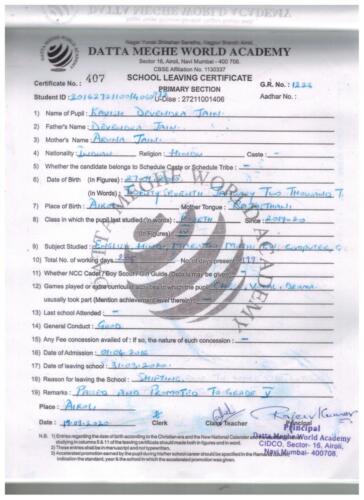 Nagpur Yuvak Shikshan Sanstha, Nagpur Branch Airoli,
DATTA MEGHE WORLD ACADEMY
Sector 16, Airoli, Navi Mumbai - 400 708.
CBSE Affiliation No. 1130337
SCHOOL LEAVING CERTIFICATE
Certificate No. : 407
PRIMARY SECTION
G.R. No. : 1223
Student ID :
U-Dise : 27211001406
Aadhar No. :
1) Name of Pupil : KAVISH DEVENDRA JAIN
2) Father's Name : DEVENDRA JAIN
3) Mother's Name : ARUNA JAIN
4) Nationality : INDIAN Religion : HINDU Caste : -
5) Whether the candidate belongs to Schedule Caste or Schedule Tribe : -
6) Date of Birth (In Figures) :
(In Words) : TWENTY SEVENTH JANUARY TWO THOUSAND T
7) Place of Birth : AIROLI Mother Tongue : RAJASTHANI
8) Class in which the pupil last studied (In words) : FOURTH Since 2019-20
(In Figures)
9) Subject Studied : ENGLISH, HINDI, MARATHI, MATH, EVS, COMPUTER, G
10) Total No. of working days No. of days present
11) Whether NCC Cadet / Boy Scout / Girl Guide (Details may be given)
12) Games played or extra curricular activities in which the pupil DRAMA
usually took part (Mention achievement level therein) : -
13) Last School Attended : -
14) General Conduct : GOOD
15) Any Fee concession availed of : If so, the nature of such concession : -
16) Date of Admission : 01.04.2016
17) Date of leaving school : 31.03.2020
18) Reason for leaving the School : SHIFTING
19) Remarks : PASSED AND PROMOTED TO GRADE V
Place : AIROLI
Date : 2020
Clerk Class Teacher Principal
Rajeev Kumar
Principal
Datta Meghe World Academy
CIDCO, Sector- 16, Airoli,
Navi Mumbai- 400708.
N.B. 1) Entries regarding the date of birth according to the Christian era and the New National Calendar
studying in columns 6 & 11 of the leaving certificate should made both in figures and in word.
2) These entries shall be in manuscript and not typewritten.
3) Accelerated promotion earned by the pupil during his/her school career should be specified in the Remarks
indication the standard, year & the school in which the accelerated promotion was given.
DATTA MEGHE WORLD ACADEMY